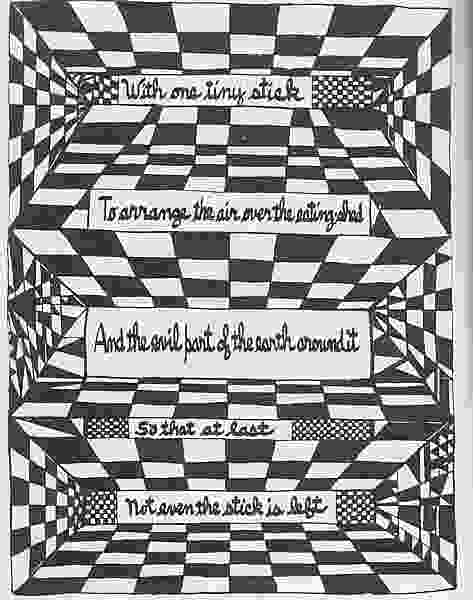 With one tiny stick
To arrange the air over the eating shed
And the evil part of the earth around it
So that at last
Not even the stick is left